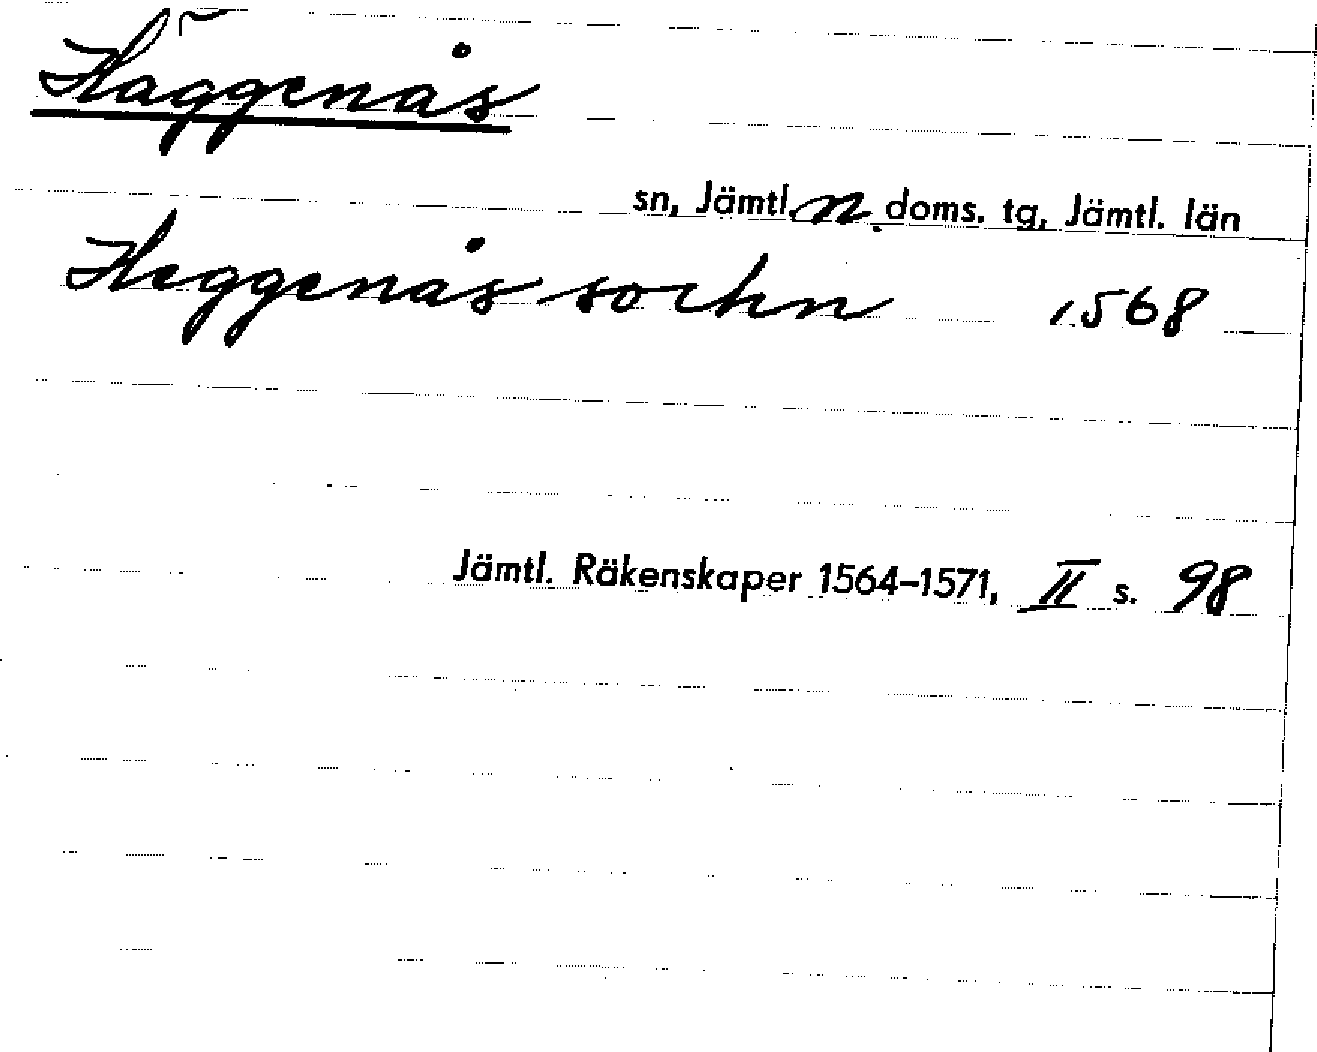 Häggenås
sn, Jämtl. n. doms. tg, Jämtl. län
Heggenås sochn 1568
Jämtl. Räkenskaper 1564–1571, II s. 98